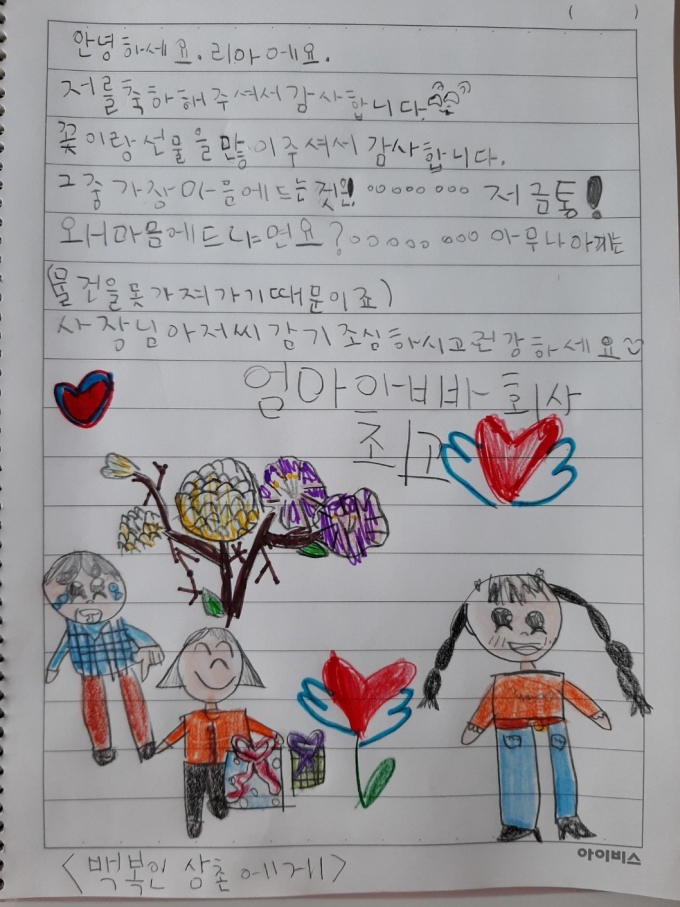 ( )
안녕하세요. 리아에요.
저를 축하해주셔서 감사합니다.
꽃이랑 선물을 많이 주셔서 감사합니다.
그 중 가장 마음에 드는 것은, ooooooooo 저금통!
왜 마음에 드냐면요? ooooo ooo 아무나 아끼는
(물건을 못 가져가기 때문이죠)
사장님 아저씨 감기 조심하시고 건강하세요
엄마 아빠 회사
최고
아이비스
<백복인 삼촌에게>